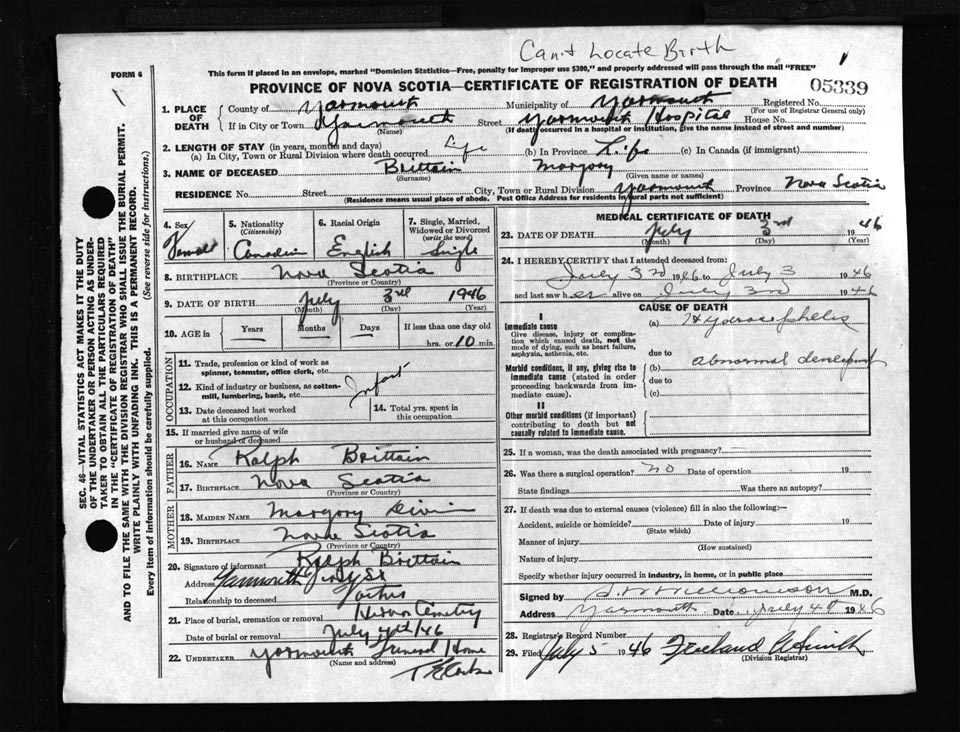 Can't Locate Birth
FORM 6
This form if placed in an envelope, marked "Dominion Statistics—Free, penalty for improper use $300," and properly addressed will pass through the mail "FREE"
PROVINCE OF NOVA SCOTIA—CERTIFICATE OF REGISTRATION OF DEATH
05339
1. PLACE OF DEATH
County of Yarmouth Municipality of Yarmouth Registered No.
(For use of Registrar General only)
If in City or Town Yarmouth Street Yarmouth Hospital House No.
(Name) (If death occurred in a hospital or institution, give the name instead of street and number)
2. LENGTH OF STAY (in years, months and days)
(a) In City, Town or Rural Division where death occurred Life (b) In Province Life (c) In Canada (if immigrant)
3. NAME OF DECEASED Brittain Margory
(Surname) (Given name or names)
RESIDENCE No. Street City, Town or Rural Division Yarmouth Province Nova Scotia
(Residence means usual place of abode. Post Office Address for residents in rural parts not sufficient)
4. Sex Female
5. Nationality (Citizenship) Canadian
6. Racial Origin English
7. Single, Married, Widowed or Divorced (write the word) Single
8. BIRTHPLACE Nova Scotia
(Province or Country)
9. DATE OF BIRTH July 3rd 1946
(Month) (Day) (Year)
10. AGE in Years Months Days If less than one day old
hrs. or 10 min.
OCCUPATION
11. Trade, profession or kind of work as spinner, teamster, office clerk, etc.
12. Kind of industry or business, as cotton-mill, lumbering, bank, etc. Infant
13. Date deceased last worked at this occupation
14. Total yrs. spent in this occupation
15. If married give name of wife or husband of deceased
FATHER
16. NAME Ralph Brittain
17. BIRTHPLACE Nova Scotia
(Province or Country)
MOTHER
18. MAIDEN NAME Margory
19. BIRTHPLACE Nova Scotia
(Province or Country)
20. Signature of informant Ralph Brittain
Address Yarmouth
Relationship to deceased Father
21. Place of burial, cremation or removal Cemetry
Date of burial or removal July 4th/46
22. UNDERTAKER Yarmouth Funeral Home
(Name and address)
MEDICAL CERTIFICATE OF DEATH
23. DATE OF DEATH July 3rd 1946
(Month) (Day) (Year)
24. I HEREBY CERTIFY that I attended deceased from:
July 3rd 1946 to July 3 1946
and last saw her alive on July 3rd 1946
CAUSE OF DEATH
I
Immediate cause
Give disease, injury or complication which caused death, not the mode of dying, such as heart failure, asphyxia, asthenia, etc.
(a) Hydrocephelus
due to
Morbid conditions, if any, giving rise to immediate cause (stated in order proceeding backwards from immediate cause).
(b) abnormal development
due to
(c)
II
Other morbid conditions (if important) contributing to death but not causally related to immediate cause.
25. If a woman, was the death associated with pregnancy?
26. Was there a surgical operation? no Date of operation 19
State findings Was there an autopsy?
27. If death was due to external causes (violence) fill in also the following:—
Accident, suicide or homicide? Date of injury 19
(State which)
Manner of injury
(How sustained)
Nature of injury
Specify whether injury occurred in industry, in home, or in public place
Signed by M.D.
Address Yarmouth Date July 4th 1946
28. Registrar's Record Number
29. Filed July 5 1946 Freeland
(Division Registrar)
SEC. 46—VITAL STATISTICS ACT MAKES IT THE DUTY
OF THE UNDERTAKER OR PERSON ACTING AS UNDER-
TAKER TO OBTAIN ALL THE PARTICULARS REQUIRED
IN THE "CERTIFICATE OF REGISTRATION OF DEATH"
AND TO FILE THE SAME WITH THE DIVISION REGISTRAR WHO SHALL ISSUE THE BURIAL PERMIT.
WRITE PLAINLY WITH UNFADING INK. THIS IS A PERMANENT RECORD.
Every item of information should be carefully supplied. (See reverse side for instructions.)